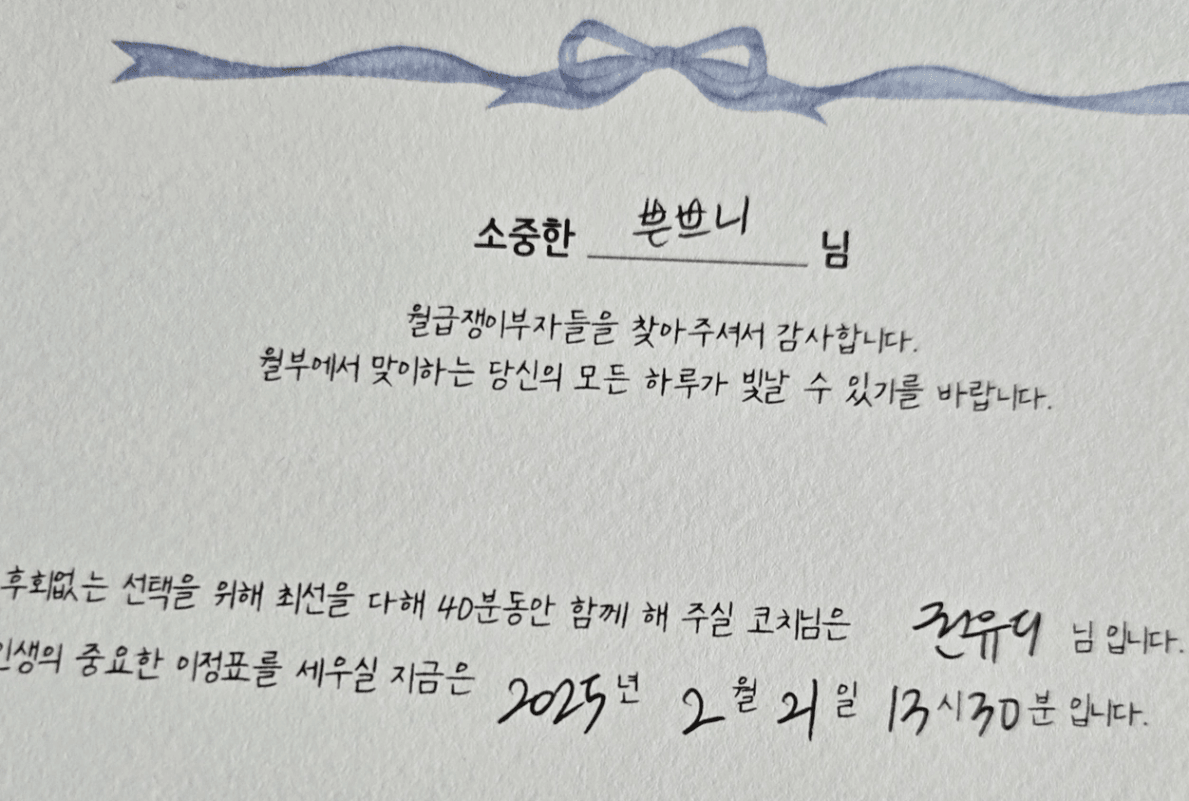 소중한 쁜쁘니 님
월급쟁이부자들을 찾아주셔서 감사합니다.
월부에서 맞이하는 당신의 모든 하루가 빛날 수 있기를 바랍니다.
후회없는 선택을 위해 최선을 다해 40분동안 함께 해 주실 코치님은 권유디 님 입니다.
인생의 중요한 이정표를 세우실 지금은 2025년 2월 21일 13시30분 입니다.